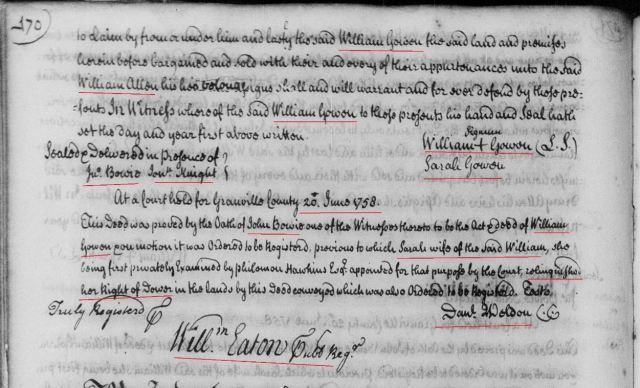 170
to claim by from or under him and lastly the said William Gowen the said land and premises
herein before bargained and sold with their and every of their appurtenances unto the said
William Allen his heirs &
assigns shall and will warrant and for ever defend by these pre-
-sents In Witness whereof the said William Gowen to these presents his hand and Seal hath
set the day and year first above written
Signum
William + Gowen (L.S.)
Sarah Gowen
Sealed & Delivered in Presence of
Jno. Bowie Jont. Knight
At a Court held for Granville County 20th. June 1758.
This Deed was proved by the Oath of John Bowie one of the Witnesses thereto to be the Act & deed of William
Gowen & on motion it was Ordered to be Registered, previous to which Sarah wife of the Said William, she
being first privately Examined by Philemon Hawkins Esqr. appointed for that purpose by the Court, relinquished
her Right of Dower in the lands by this Deed conveyed which was also Ordered to be Registered. Teste
Danl. Weldon C:C:
Truly Registered
Willm. Eaton Pubc. Regr.